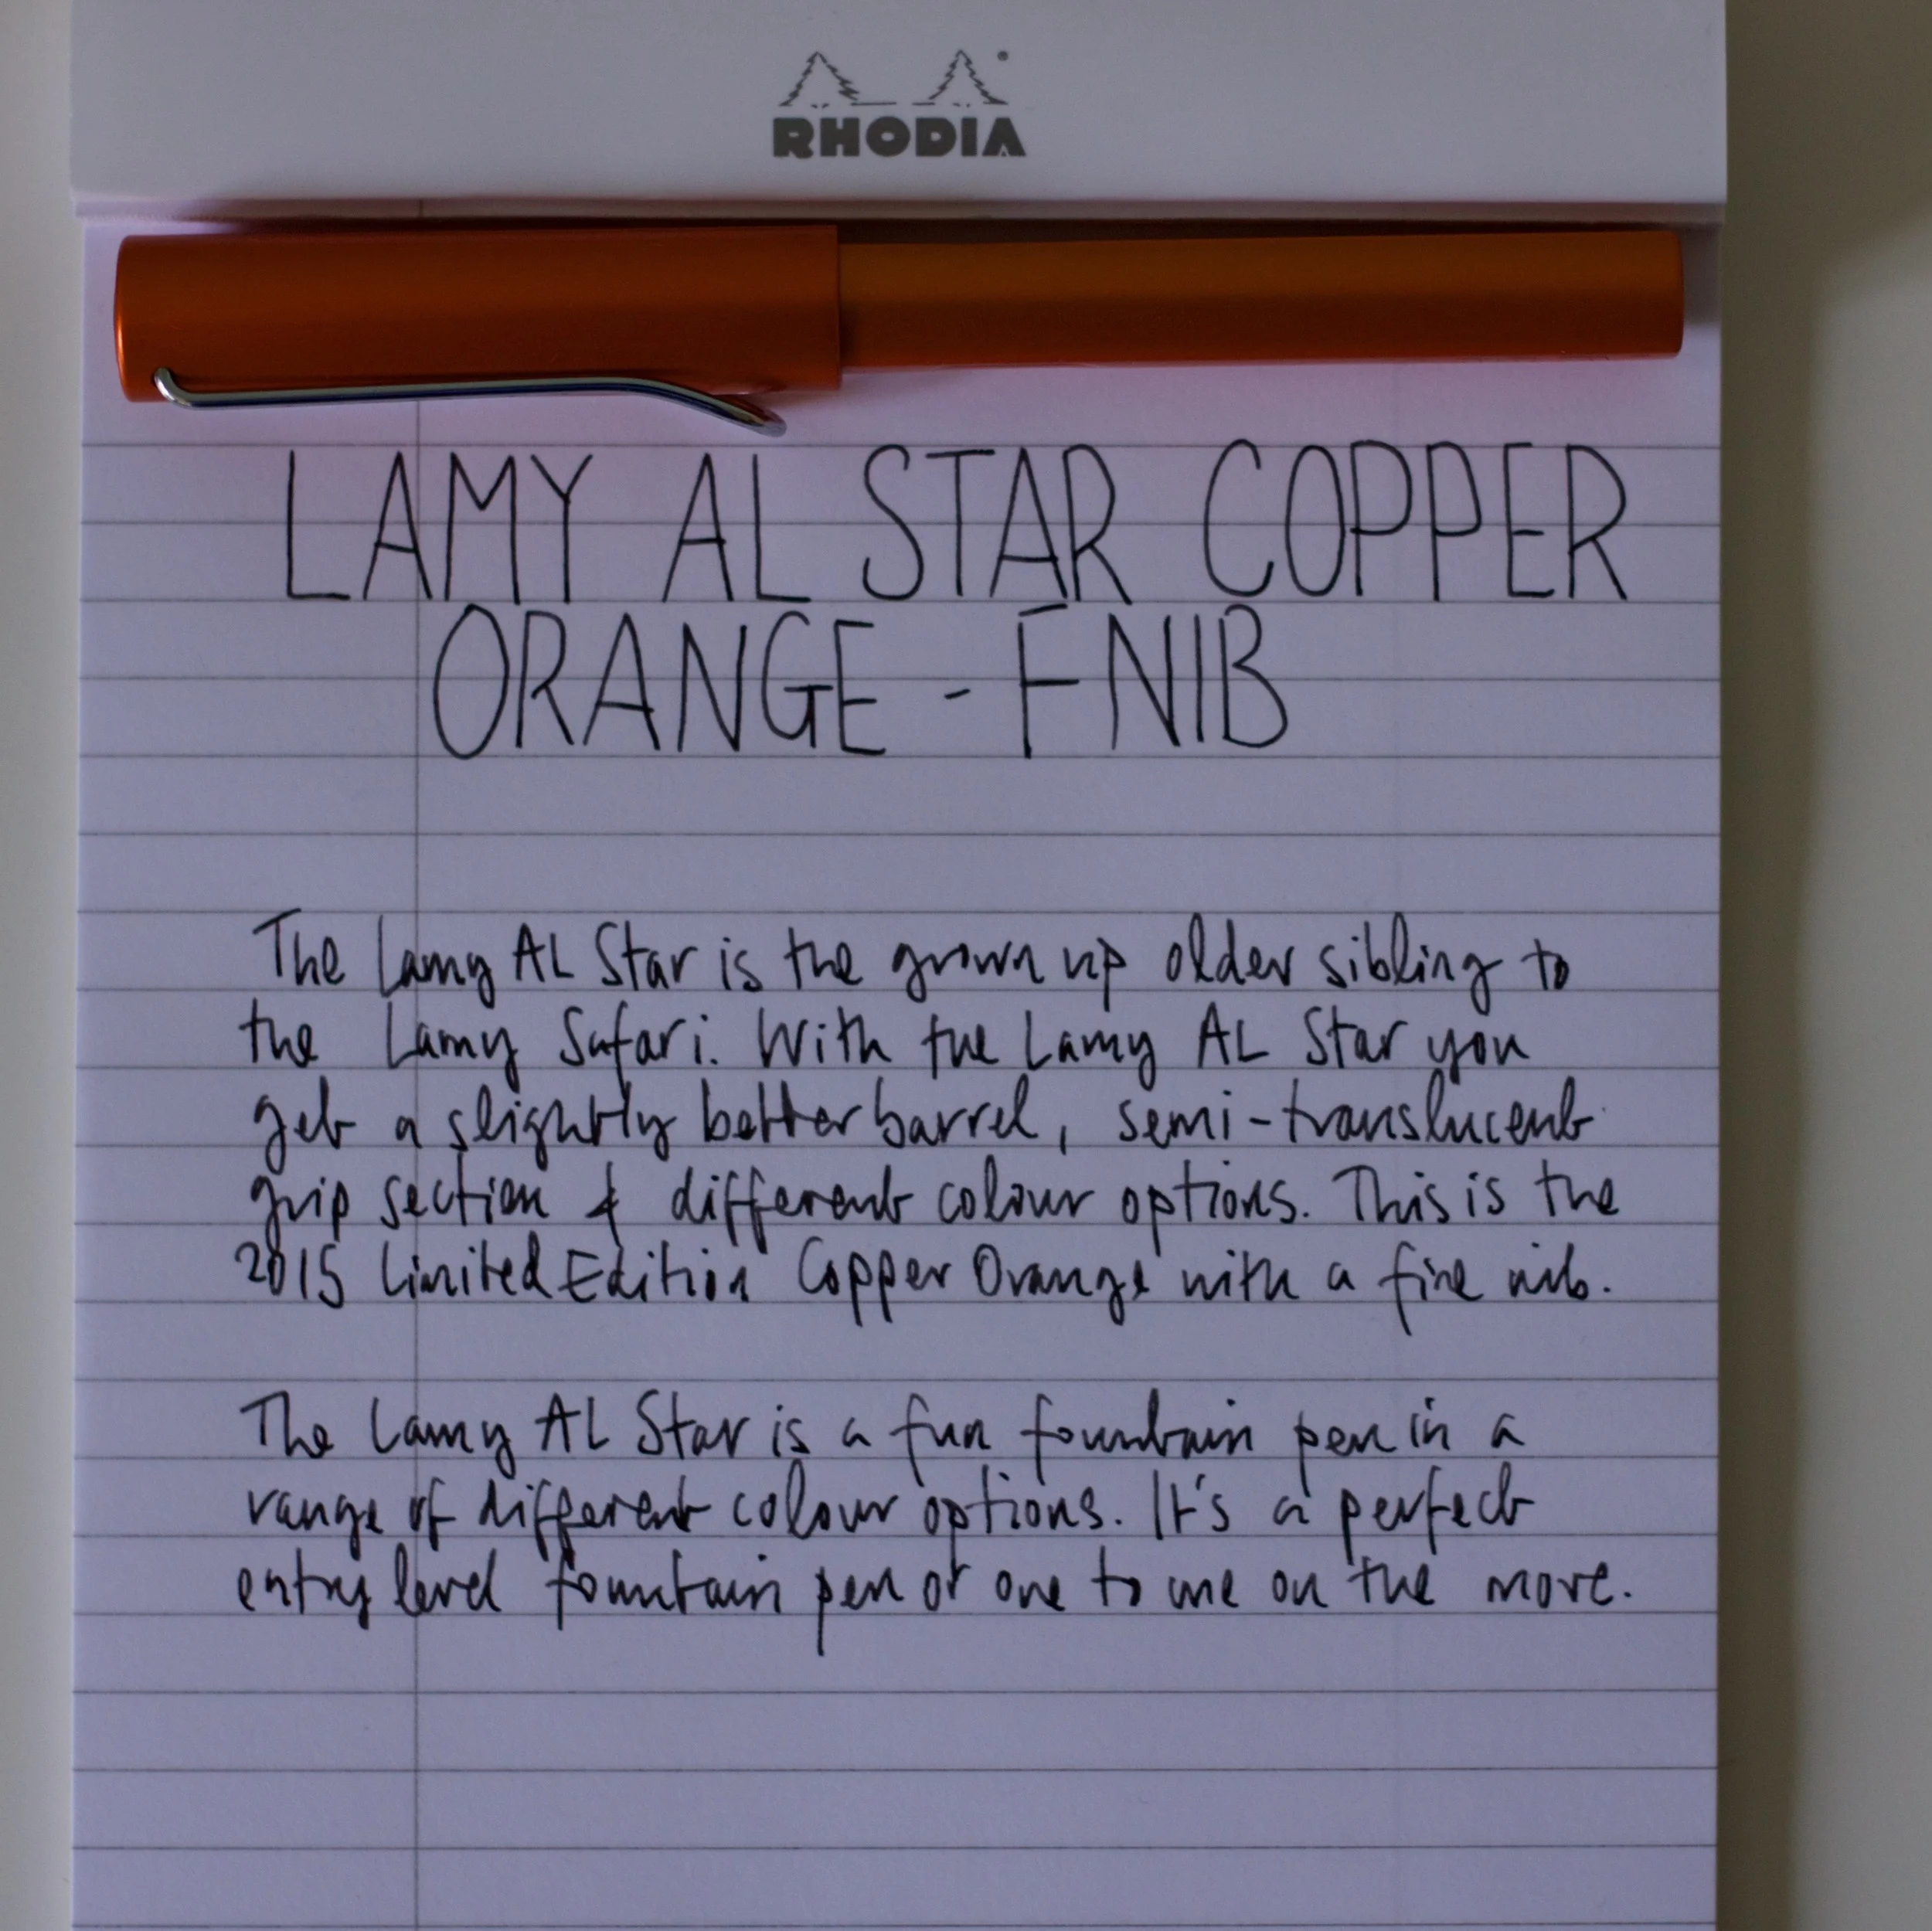 RHODIA
LAMY AL STAR COPPER
ORANGE - F NIB
The Lamy AL Star is the grown up older sibling to
the Lamy Safari. With the Lamy AL Star you
get a slightly better barrel, semi-translucent
grip section & different colour options. This is the
2015 Limited Edition Copper Orange with a fine nib.
The Lamy AL Star is a fun fountain pen in a
range of different colour options. It's a perfect
entry level fountain pen or one to use on the move.